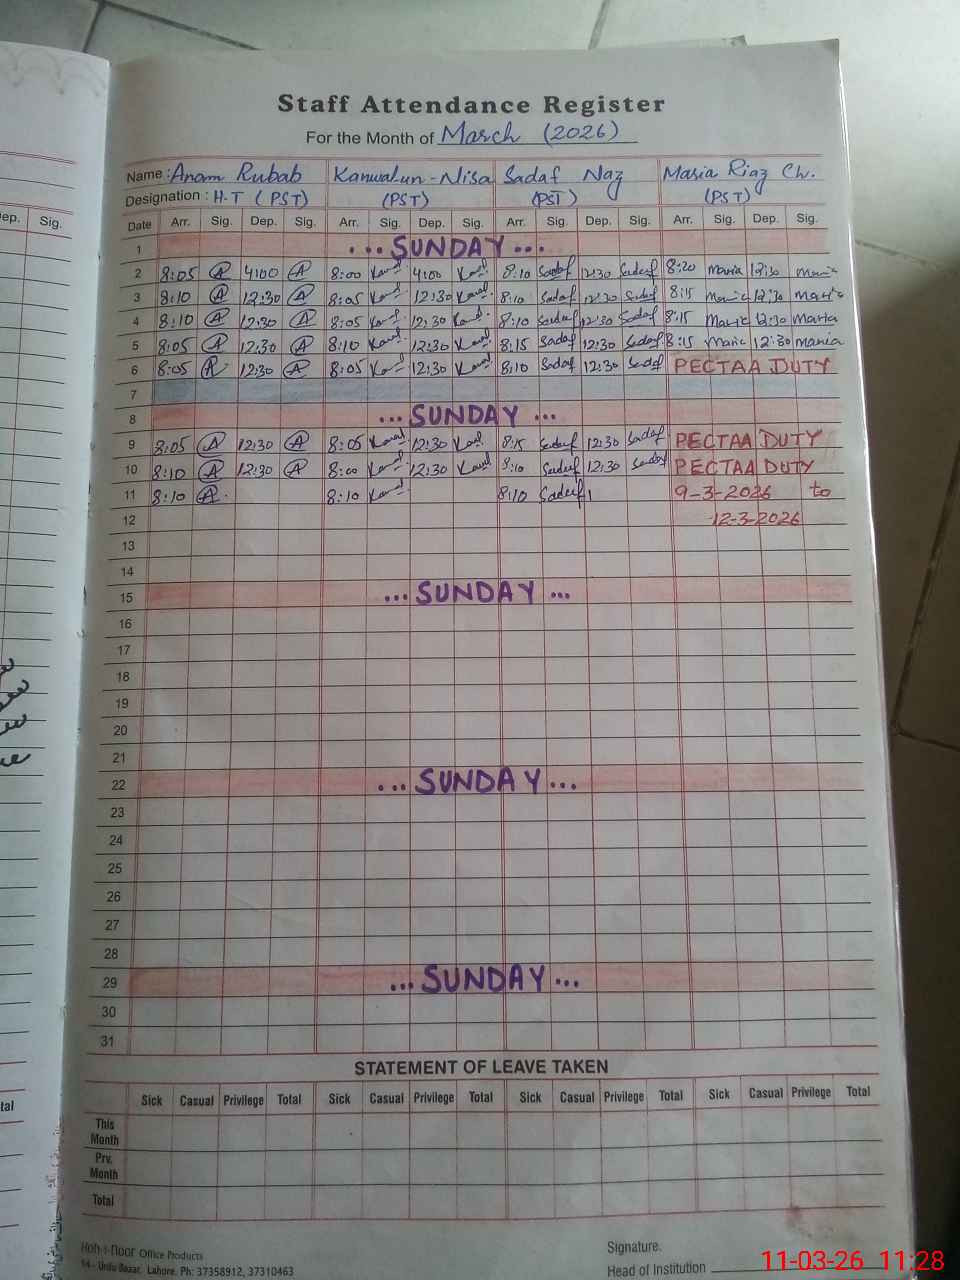 Staff Attendance Register
For the Month of March (2026)
Name : Anam Rubab Kanwalun-Nisa Sadaf Naz Maria Riaz Ch.
Designation : H.T (PST) (PST) (PST) (PST)
Date Arr. Sig. Dep. Sig. Arr. Sig. Dep. Sig. Arr. Sig. Dep. Sig. Arr. Sig. Dep. Sig.
ep. Sig.
1 ... SUNDAY ...
2 8:05 A 4:00 A 8:00 4:00 8:10 Sadaf 12:30 Sadaf 8:20 Maria 12:30 Maria
3 8:10 A 12:30 A 8:05 12:30 8:10 Sadaf 12:30 Sadaf 8:15 Maria 12:30 Maria
4 8:10 A 12:30 A 8:05 12:30 8:10 Sadaf 12:30 Sadaf 8:15 Maria 12:30 Maria
5 8:05 A 12:30 A 8:10 12:30 8:15 Sadaf 12:30 Sadaf 8:15 Maria 12:30 Maria
6 8:05 A 12:30 A 8:05 12:30 8:10 Sadaf 12:30 Sadaf PECTAA DUTY
7
8 ... SUNDAY ...
9 8:05 A 12:30 A 8:05 12:30 8:15 Sadaf 12:30 Sadaf PECTAA DUTY
10 8:10 A 12:30 A 8:00 12:30 8:10 Sadaf 12:30 Sadaf PECTAA DUTY
11 8:10 A 8:10 8:10 Sadaf 9-3-2026 to
12 12-3-2026
13
14
15 ... SUNDAY ...
16
17
18
19
20
21
22 ... SUNDAY ...
23
24
25
26
27
28
29 ... SUNDAY ...
30
31
STATEMENT OF LEAVE TAKEN
Sick Casual Privilege Total Sick Casual Privilege Total Sick Casual Privilege Total Sick Casual Privilege Total
tal
This
Month
Prv.
Month
Total
Koh-i-noor Office Products
14- Urdu Bazar, Lahore. Ph: 37358912, 37310463
Signature.
Head of Institution
11-03-26 11:28